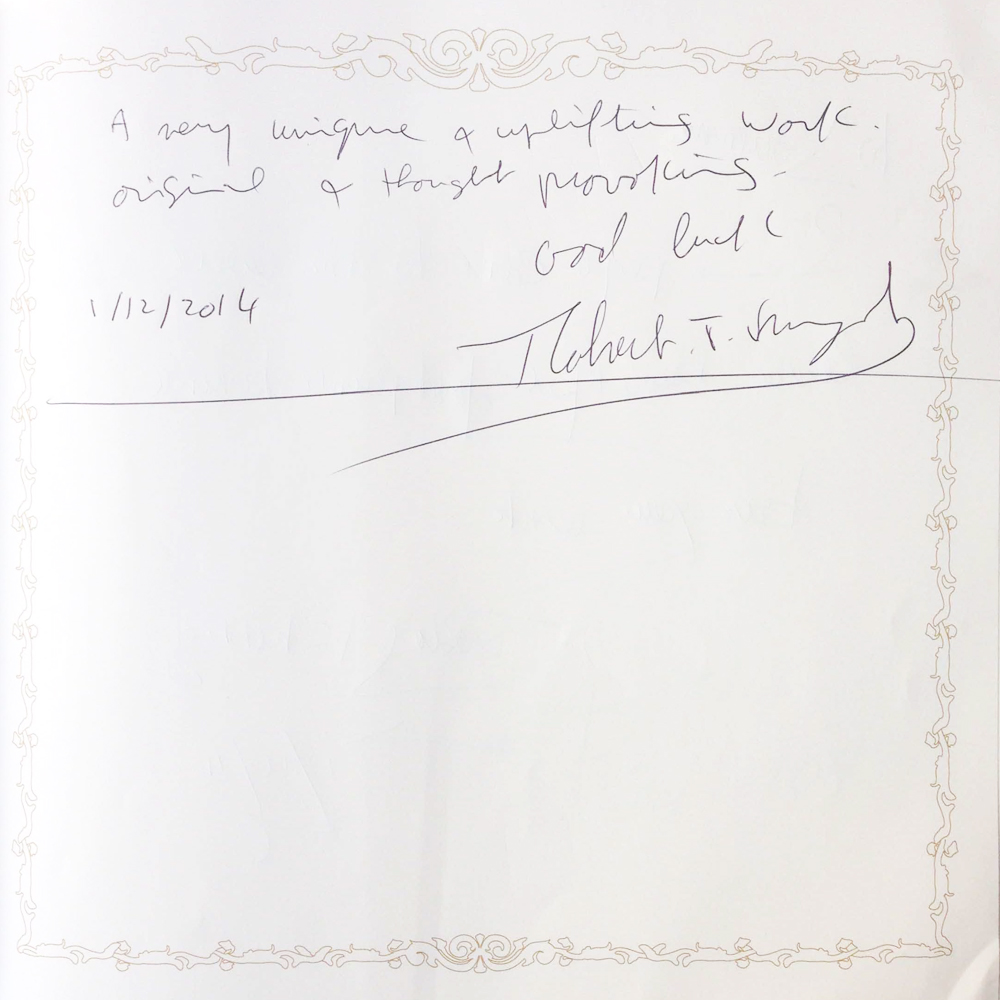 A very unique & uplifting work.
original & thought provoking.
Good luck
1/12/2014
Robert. T.